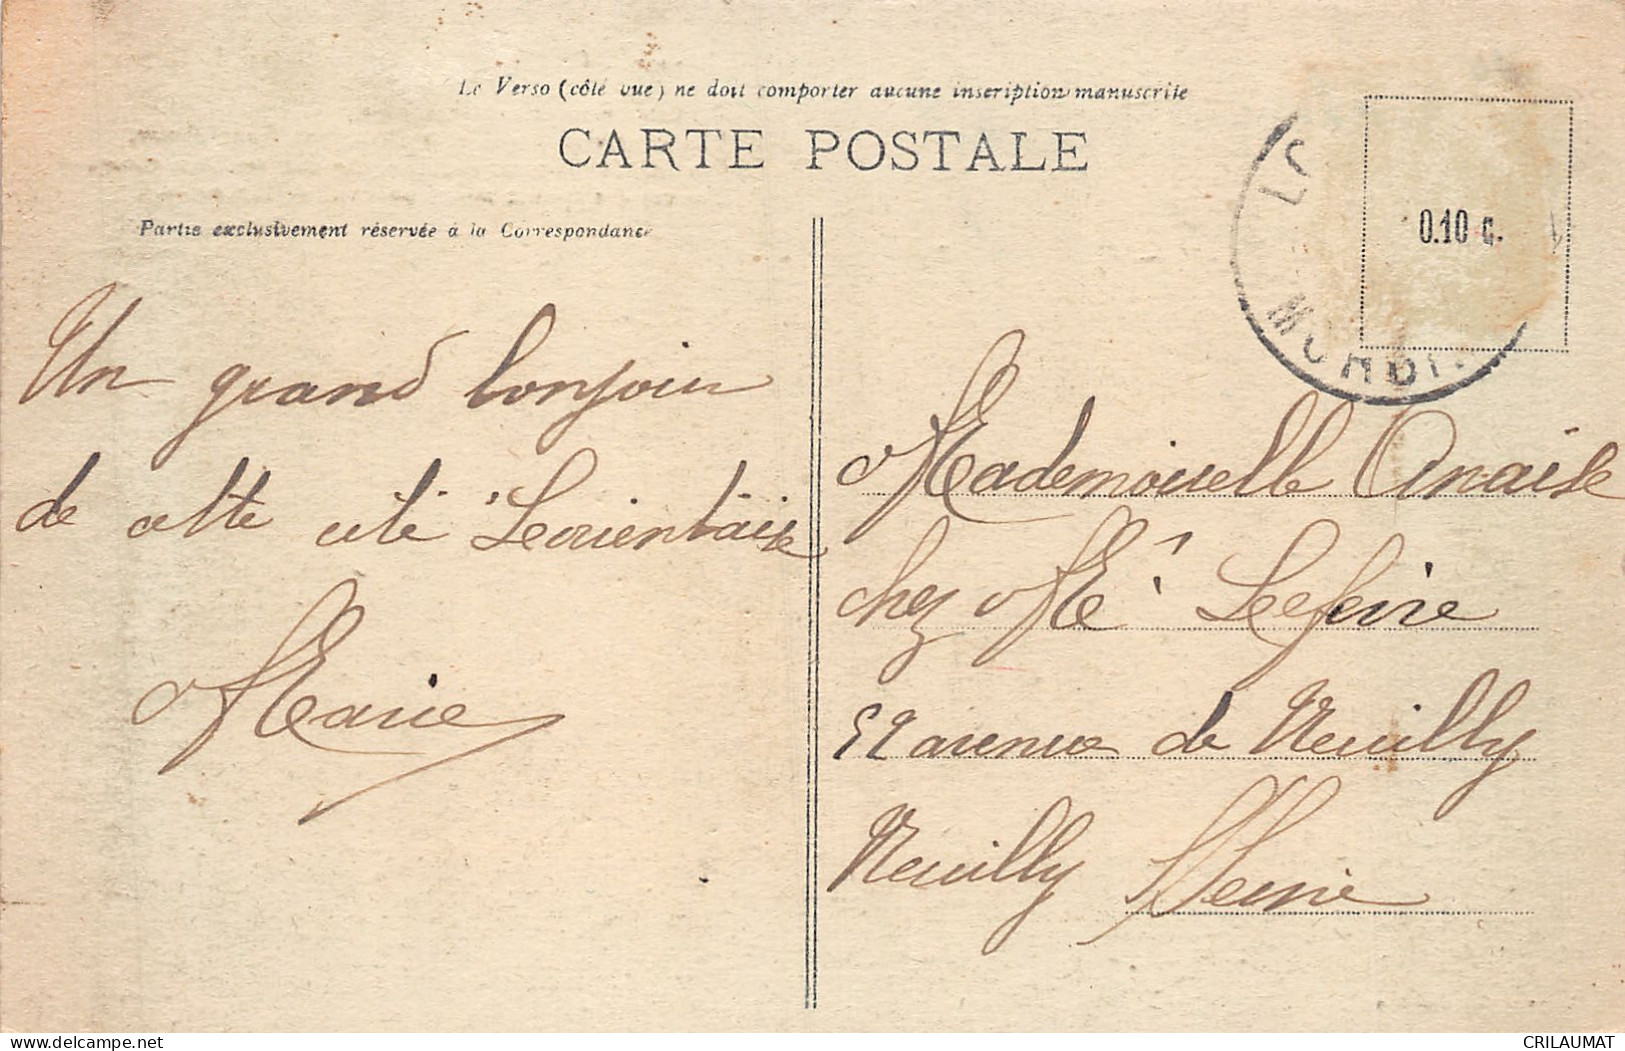 Le Verso (côté vue) ne doit comporter aucune inscription manuscrite
CARTE POSTALE
Partie exclusivement réservée à la Correspondance
0.10 c.
MORBI
Un grand bonjour
de cette cité Lorientaise
Marie
Mademoiselle Anaise
chez Me Lefevre
52 avenue de Neuilly
Neuilly Seine
www.delcampe.net
CRILAUMAT